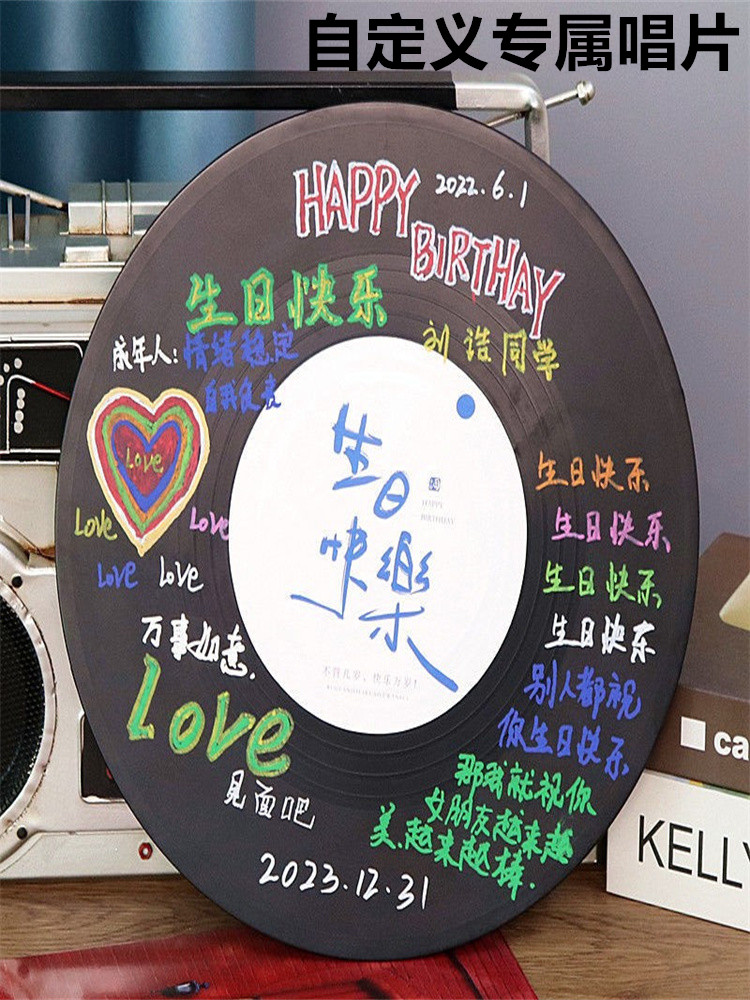 自定义专属唱片
HAPPY 2022.6.1
BIRTHAY
生日快乐
刘浩同学
成年人:情绪稳定
Love
Love Love
Love Love
生日快樂
HAPPY
BIRTHDAY
不管几岁，快乐万岁！
生日快乐
生日快乐
生日快乐
生日快乐
万事如意.
Love
见面吧
别人都祝
你生日快乐
那我就祝你
女朋友越来越
美.越来越棒.
2023.12.31
ca
KELLY